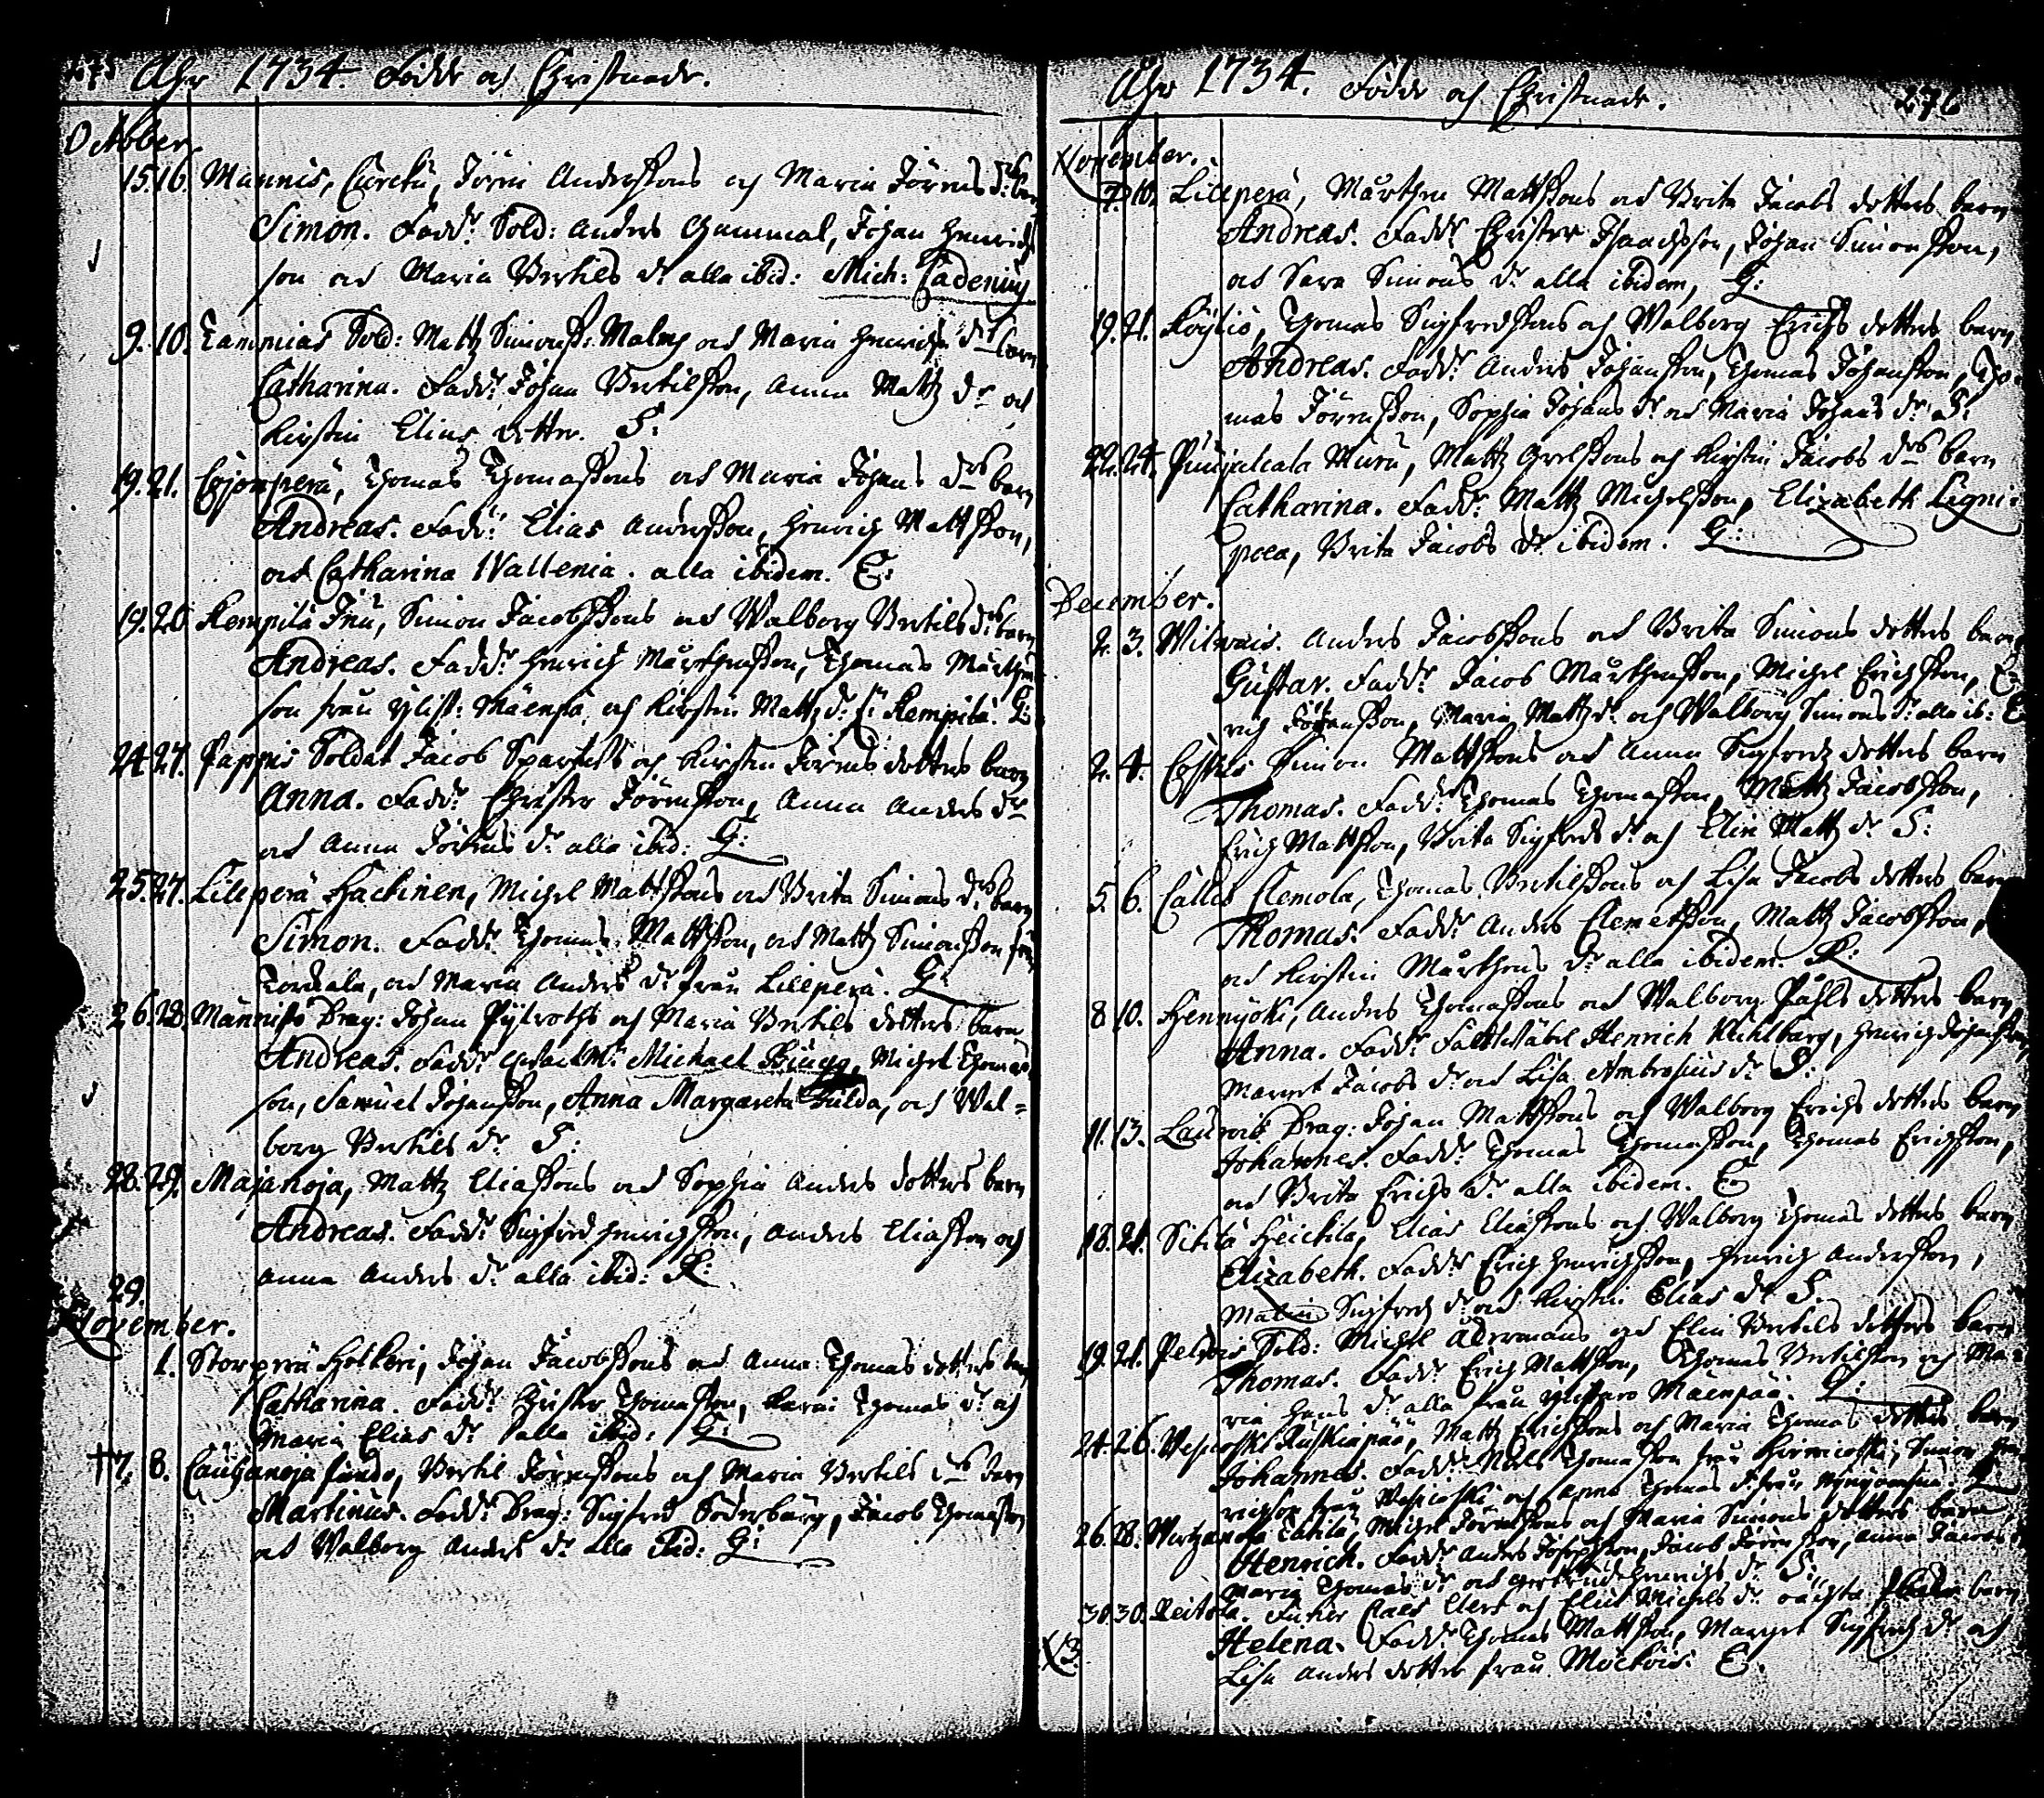 275 Åhr 1734. Födde och Christnade.
October.
15. 16. Mannis, Cúrckú, Jören Anderssons och Maria Jörens d:rs barn
Simon. Fadd:r Sold: Anders Gammal, Johan Henrichs
son och Maria Bertils d:r alla ibid: Mich: Cadenius
9. 10. Tammias Sold: Mattz Simonss: Malms och Maria Henrichs d:rs barn
Catharina. Fadd:r Johan Bertilsson, Anna Mattz d:r och
Kirstin Elias dotter. S:
19. 21. Thomas Thomassons och Maria Johans d:rs barn
Andreas. Fadd:r Elias Andersson, Henrich Mattsson,
och Catharina Wallenia. alla ibidem. E:
19. 20. Kempilä Inú, Simon Jacobssons och Walborg Bertils d:rs barn
Andreas. Fadd:r Henrich Mårthensson, Thomas Mårthens
son från Ylist: Mäenpä, och Kirstin Mattz d:r f: Kempilä. G:
24. 27. Pappis Soldat Jacob och Kirstin Jörens dotters barn
Anna. Fadd:r Christer Jörensson, Anna Anders d:r
och Anna Jörens d:r alla ibid: G:
25. 27. Lillperä Hackinen, Michel Mattssons och Brita Simons d:rs barn
Simon. Fadd:r Thomas Mattsson, och Mattz Simonsson från
Torckala, och Maria Anders d:r från Lillperä. G:
26. 28. Männistö Drag: Johan och Maria Bertils dotters barn
Andreas. Fadd:r Michael Michel Thomas
son, Samuel Johansson, Anna Margareta Gulda, och Wal=
borg Bertils d:r S:
28. 29. Majanoja, Mattz Eliassons och Sophia Anders dotters barn
Andreas. Fadd:r Sigfred Henrichsson, Anders Eliasson och
Anna Anders d:r alla ibid: R:
29.
November.
1. Storperä Holkeri, Johan Jacobssons och Anna Thomas dotters barn
Catharina. Fadd:r Christer Thomasson, Karin Thomas d:r och
Maria Elias d:r alla ibid: G:
†7. 8. Cauhanoja Bertil Jörenssons och Maria Bertils d:rs barn
Martinus. Fadd:r Drag: Sigfred Söderburg, Jacob Thomasson
och Walborg Anders d:r alla ibid: G:
Åhr 1734. Födde och Christnade. 276
November.
7. 10. Lillperä, Mårthen Mattssons och Brita Jacobs dotters barn
Andreas. Fadd:r Christer Isaachsson, Johan Simonsson,
och Sara Simons d:r alla ibidem, G:
19. 21. Köyliö, Thomas Sigfredssons och Walborg Erichs dotters barn
Andreas. Fadd:r Anders Johansson, Thomas Johansson, Tho-
mas Jörensson, Sophia Johans d:r och Maria Johans d:r S:
22. 24. Múrú, Mattz Grelssons och Kirstin Jacobs d:rs barn
Catharina. Fadd:r Mattz Michelsson, Elizabeth Ligni=
poea, Brita Jacobs d:r ibidem. G:
December.
2. 3. Wilwais. Anders Jacobssons och Brita Simons dotters barn
Gustav. Fadd:r Jacob Mårthensson, Michel Erichsson, E
rich Johansson, Maria Mattz d:r och Walborg Simons d:r alla ib: E
2. 4. Simon Mattssons och Anna Sigfreds dotters barn
Thomas. Fadd:r Thomas Thomasson, Mattz Jacobsson,
Erich Mattsson, Brita Sigfreds d:r och Elin Mattz d:r S:
5. 6. Callis Clemola, Thomas Bertilssons och Lisa Jacobs dotters barn
Thomas. Fadd:r Anders Clemetsson, Mattz Jacobsson,
och Kirstin Mårthens d:r alla ibidem. R:
8. 10. Hennijoki, Anders Thomassons och Walborg Påhls dotters barn
Anna. Fadd:r Fältwäbel Henrich Henrich Johansson,
Margret Jacobs d:r och Lisa Ambrosius d:r S:
11. 13. Laurois Drag: Johan Mattssons och Walborg Erichs dotters barn
Johannes. Fadd:r Thomas Thomasson, Thomas Erichsson,
och Brita Erichs d:r alla ibidem. E
18. 21. Sikilä Heickilä, Elias Eliassons och Walborg Thomas dotters barn
Elizabeth. Fadd:r Erich Henrichsson, Henrich Andersson,
Malin Sigfreds d:r och Kirstin Elias d:r S.
19. 21. Peldois Sold: Michel Åkermans och Elin Bertils dotters barn
Thomas. Fadd:r Erich Mattsson, Thomas Bertilsson och Ma=
ria Hans d:r alla från Ylistaro Mäenpää. G:
24. 26. Wescoski Ruskiapää, Mattz Erichssons och Maria Thomas dotters barn
Johannes. Fadd:r Nils Thomasson från Simon Hen
richsson från Wescoski och Anna Thomas d:r från
26. 28. Wirtzanoja Eskilä, Michel Jörenssons och Maria Simons dotters barn
Henrich. Fadd:r Anders Josephsson, Jacob Jörensson, Anna Jacobs d:r
Maria Thomas d:r och Gertrud Henrichs d:r S:
30. 30. Reitola. Claes och Elin Michels d:r barn
Helena. Fadd:r Thomas Mattsson, Margret Sigfreds d:r och
Lisa Anders dotter från Mäckois. E.